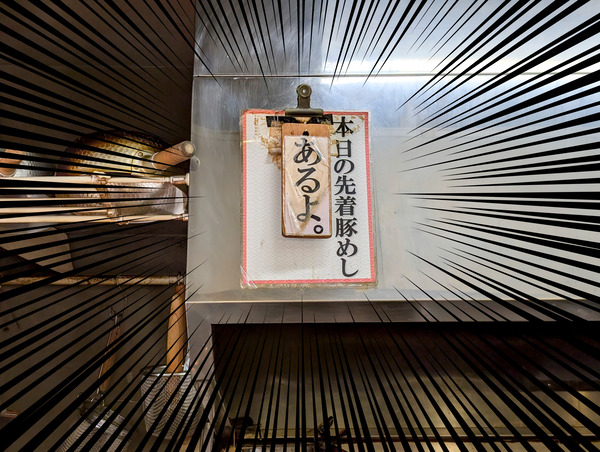 本日の先着豚めし
あるよ。